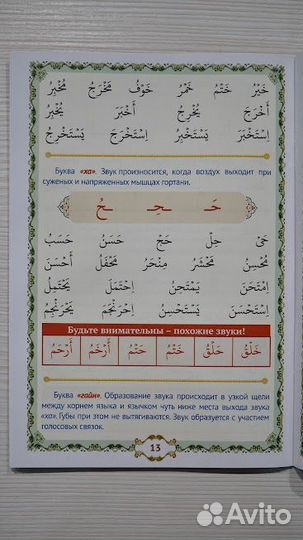 خَيْرُ خَتْمُ خَمْرُ خَوْفُ مَخْرَجَ مُخْبِرُ
أَخْرَجَ يُخْرِجُ أَخْبَرَ يُخْبِرُ
اِسْتَخْبَرَ يَسْتَخْبِرُ اِسْتَخْرَجَ يَسْتَخْرِجُ
Буква «ха». Звук произносится, когда воздух выходит при
суженых и напряженных мышцах гортани.
حَـ ـحِـ ـحُ
حَىْ حِلْ حَجْ حَسَنُ حَسَبُ
مُحْسِنُ مَحْشَرُ مِنْحَرُ مَحْفَلُ أَحْسَنَ
اِمْتَحَنَ يَمْتَحِنُ اِحْتَمَلَ يَحْتَمِلُ
اِسْتَحْسَنَ يَسْتَحْسِنُ اِحْرَنْجَمَ يَحْرَنْجِمُ
Будьте внимательны – похожие звуки!
خَلْقُ حَلْقُ خَتْمُ حَتْمُ أَرْخَمُ أَرْحَمُ
Буква «гайн». Образование звука происходит в узкой щели
между корнем языка и язычком чуть ниже места выхода звука
«ха». Губы при этом не вытягиваются. Звук образуется с участием
голосовых связок.
13
Avito